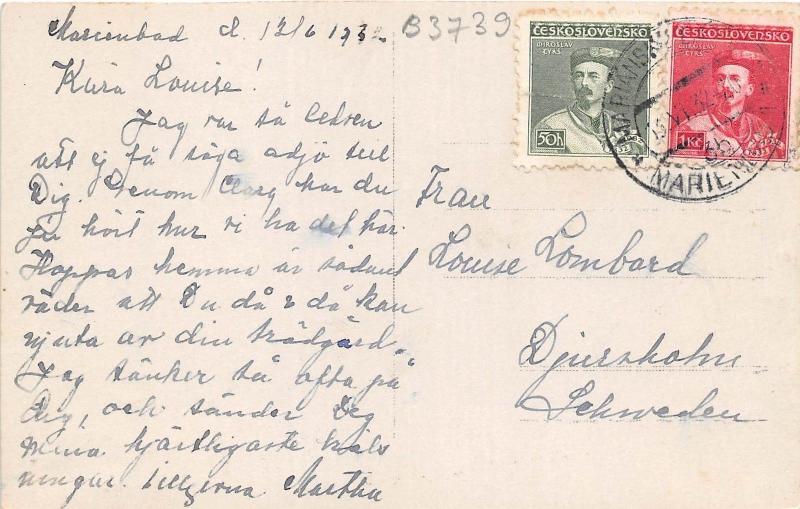 Marienbad d. 13/6 1932
B3739
Kära Louise!
Jag var så ledsen
att ej få säga adjö till
Dig. Genom Clary har du
ju hört hur vi ha det här.
Hoppas hemma är sådant
väder att Du då & då kan
njuta av din trädgård.
Jag tänker så ofta på
Dig, och sänder Dig
mina hjärtligaste häls
ningar. Martha
ČESKOSLOVENSKO
MIROSLAV
TYRŠ
50h
ČESKOSLOVENSKO
MIROSLAV
TYRŠ
1Kč
Frau
Louise Lombard
Djursholm
Schweden